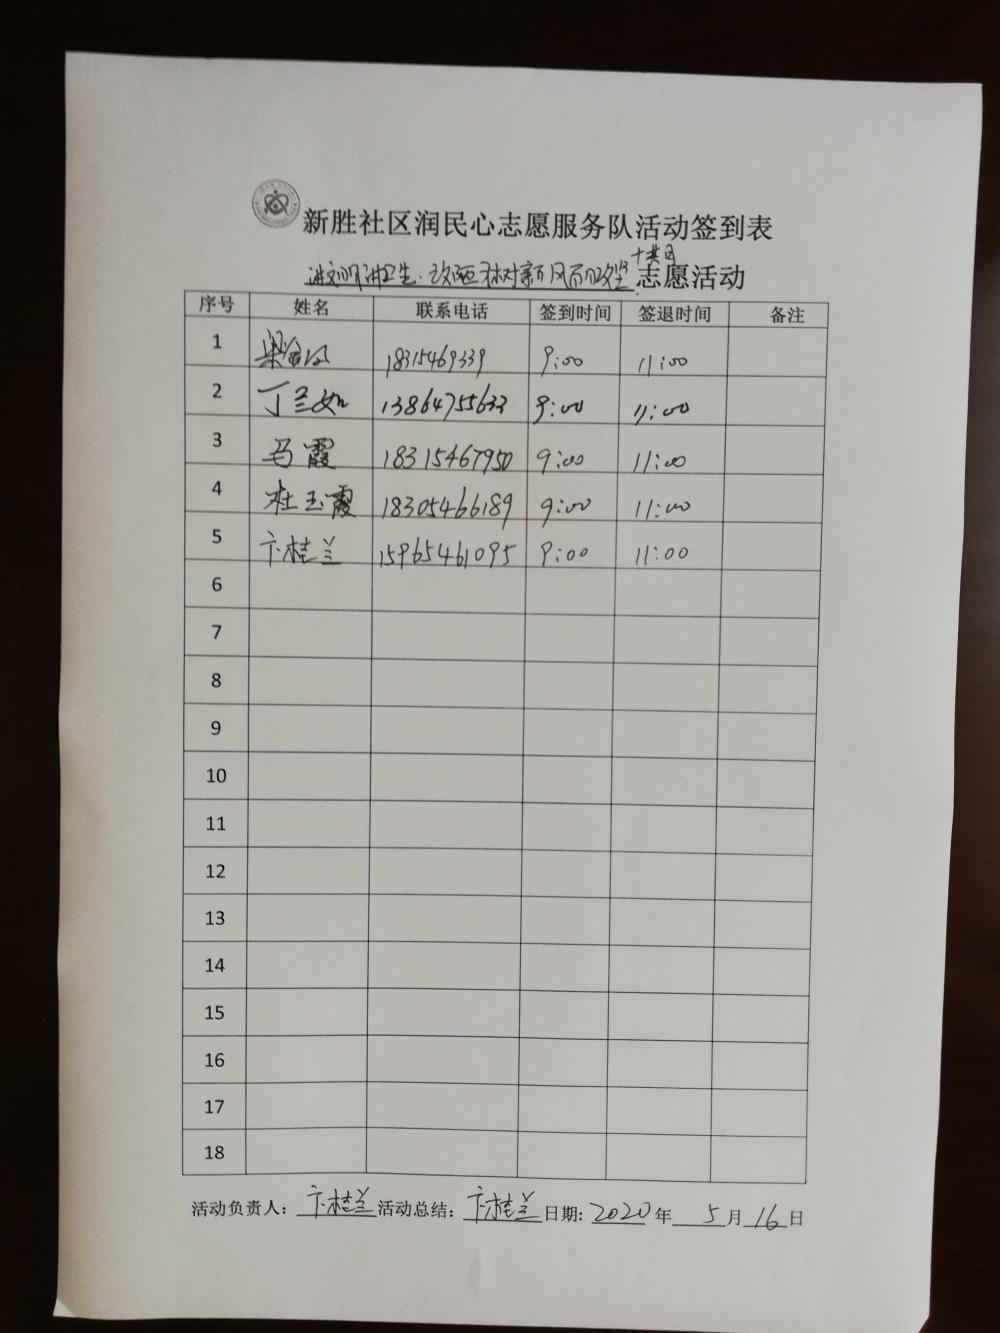 新胜社区润民心志愿服务队活动签到表
讲文明讲卫生·改陋习树新风 志愿活动
序号 姓名 联系电话 签到时间 签退时间 备注
1 18315469339 9:00 11:00
2 丁兰如 13864755633 9:00 11:00
3 马霞 18315467950 9:00 11:00
4 杜玉霞 18305466189 9:00 11:00
5 卞桂兰 15965461095 9:00 11:00
6
7
8
9
10
11
12
13
14
15
16
17
18
活动负责人：卞桂兰 活动总结：卞桂兰 日期：2020 年 5 月 16 日